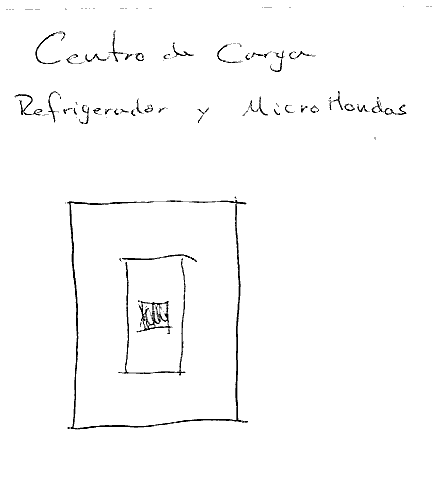 Centro de Carga
Refrigerador y MicroHondas